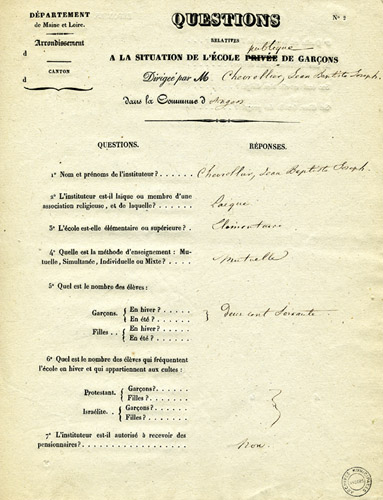 DÉPARTEMENT
de Maine et Loire.
Arrondissement
d
CANTON
d
QUESTIONS
Nº 2
RELATIVES
publique
A LA SITUATION DE L'ÉCOLE PRIVÉE DE GARÇONS
Dirigée par M. Chevrollier, Jean Baptiste Joseph.
dans la Commune d'Angers
QUESTIONS. RÉPONSES.
1º Nom et prénoms de l'instituteur? . . . . . . Chevrollier, Jean Baptiste Joseph.
2º L'instituteur est-il laïque ou membre d'une
association religieuse, et de laquelle? . . . . . . Laïque
3º L'école est-elle élémentaire ou supérieure? . Elémentaire
4º Quelle est la méthode d'enseignement : Mu-
tuelle, Simultanée, Individuelle ou Mixte? . . . . Mutuelle
5º Quel est le nombre des élèves :
Garçons. { En hiver? . . . . . .
{ En été? . . . . . . } deux cent soixante
Filles . . { En hiver? . . . . . .
{ En été? . . . . . .
6º Quel est le nombre des élèves qui fréquentent
l'école en hiver et qui appartiennent aux cultes :
Protestant. { Garçons? . . . . . .
{ Filles? . . . . . .
Israélite. . { Garçons? . . . . . .
{ Filles? . . . . . .
7º L'instituteur est-il autorisé à recevoir des
pensionnaires? . . . . . . Non.